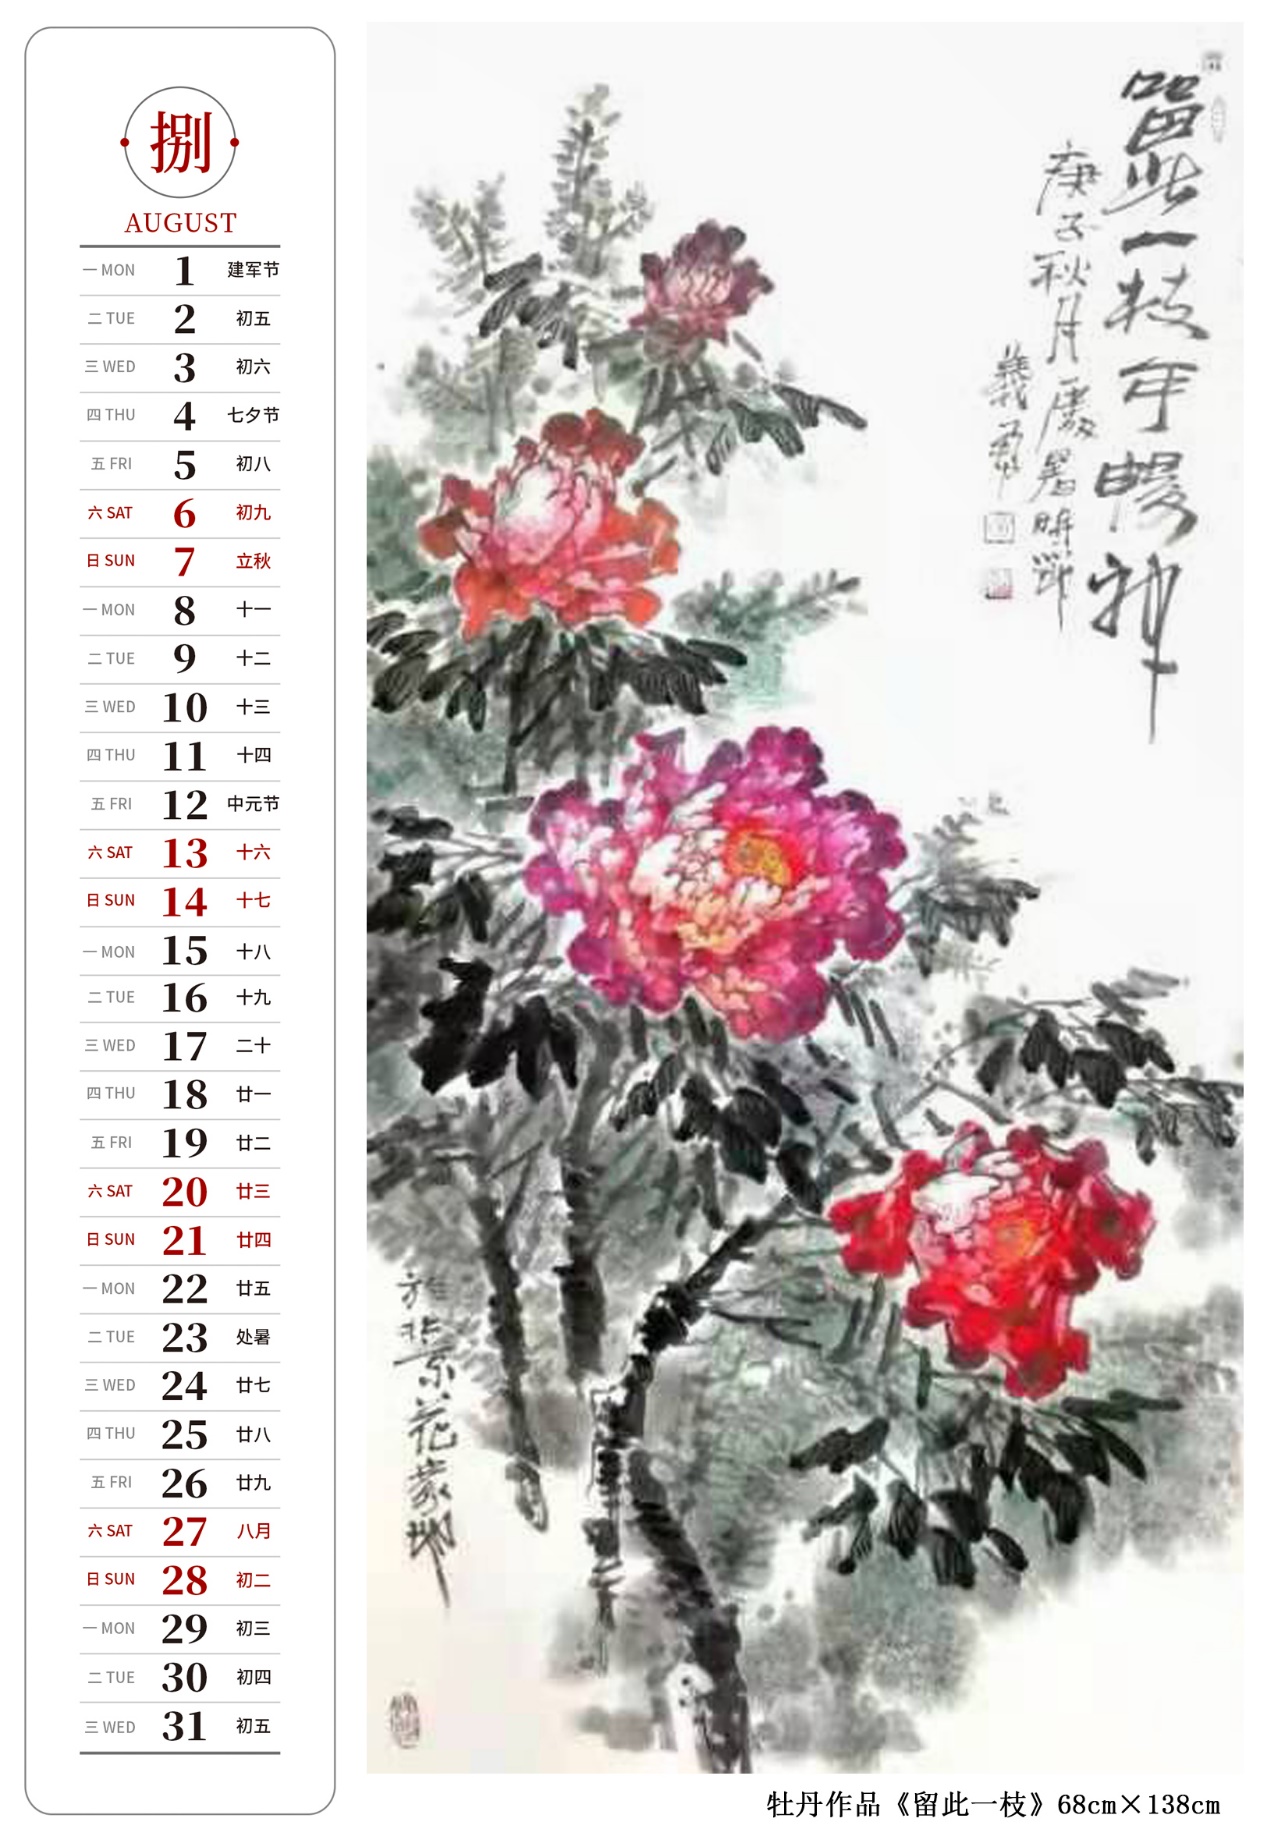 捌
AUGUST
一 MON 1 建军节
二 TUE 2 初五
三 WED 3 初六
四 THU 4 七夕节
五 FRI 5 初八
六 SAT 6 初九
日 SUN 7 立秋
一 MON 8 十一
二 TUE 9 十二
三 WED 10 十三
四 THU 11 十四
五 FRI 12 中元节
六 SAT 13 十六
日 SUN 14 十七
一 MON 15 十八
二 TUE 16 十九
三 WED 17 二十
四 THU 18 廿一
五 FRI 19 廿二
六 SAT 20 廿三
日 SUN 21 廿四
一 MON 22 廿五
二 TUE 23 处暑
三 WED 24 廿七
四 THU 25 廿八
五 FRI 26 廿九
六 SAT 27 八月
日 SUN 28 初二
一 MON 29 初三
二 TUE 30 初四
三 WED 31 初五
留此一枝
庚子秋月處暑時
花
牡丹作品《留此一枝》68cm×138cm